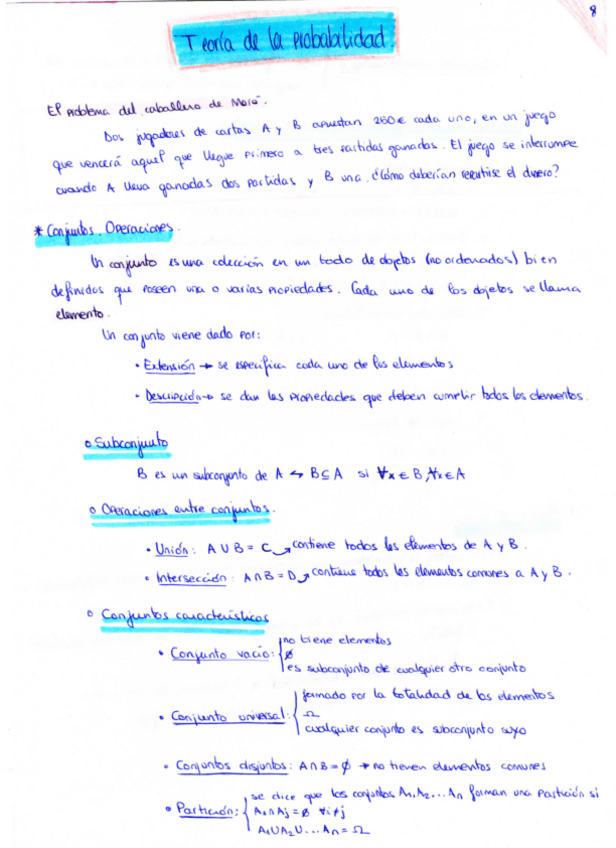 8
Teoría de la probabilidad
El problema del caballero de Meré.
Dos jugadores de cartas A y B apuestan 250€ cada uno, en un juego
que vencerá aquel que llegue primero a tres partidas ganadas. El juego se interrumpe
cuando A lleva ganadas dos partidas y B una. ¿Cómo deberían repartirse el dinero?
* Conjuntos. Operaciones.
Un conjunto es una colección en un todo de objetos (no ordenados) bien
definidos que poseen una o varias propiedades. Cada uno de los objetos se llama
elemento.
Un conjunto viene dado por:
• Extensión → se especifica cada uno de los elementos
• Descripción → se dan las propiedades que deben cumplir todos los elementos.
o Subconjunto
B es un subconjunto de A ↪ B⊆A si ∀x∈B, ∀x∈A
o Operaciones entre conjuntos.
• Unión: A∪B = C → contiene todos los elementos de A y B.
• Intersección: A∩B = D → contiene todos los elementos comunes a A y B.
o Conjuntos característicos
no tiene elementos
• Conjunto vacío: { ∅
es subconjunto de cualquier otro conjunto
formado por la totalidad de los elementos
• Conjunto universal: { Ω
cualquier conjunto es subconjunto suyo
• Conjuntos disjuntos: A∩B = ∅ → no tienen elementos comunes
se dice que los conjuntos A₁, A₂... An forman una partición si
• Partición: { Ai∩Aj = ∅ ∀i≠j
A₁∪A₂∪... An = Ω